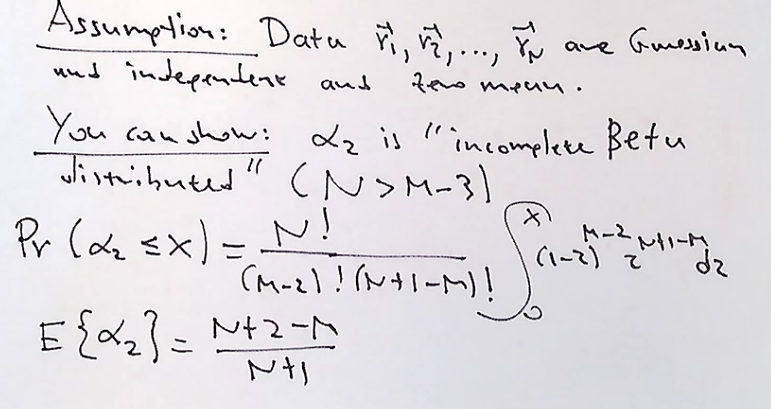 Assumption: Data r⃗₁, r⃗₂, ..., r⃗_N are Gaussian
and independent and zero mean.
You can show: α₂ is "incomplete Beta
distributed" (N > M-3)
Pr (α₂ ≤ x) = N! / ((M-2)! (N+1-M)!) ∫₀ˣ (1-z)^(M-2) z^(N+1-M) dz
E{α₂} = (N+2-M) / (N+1)